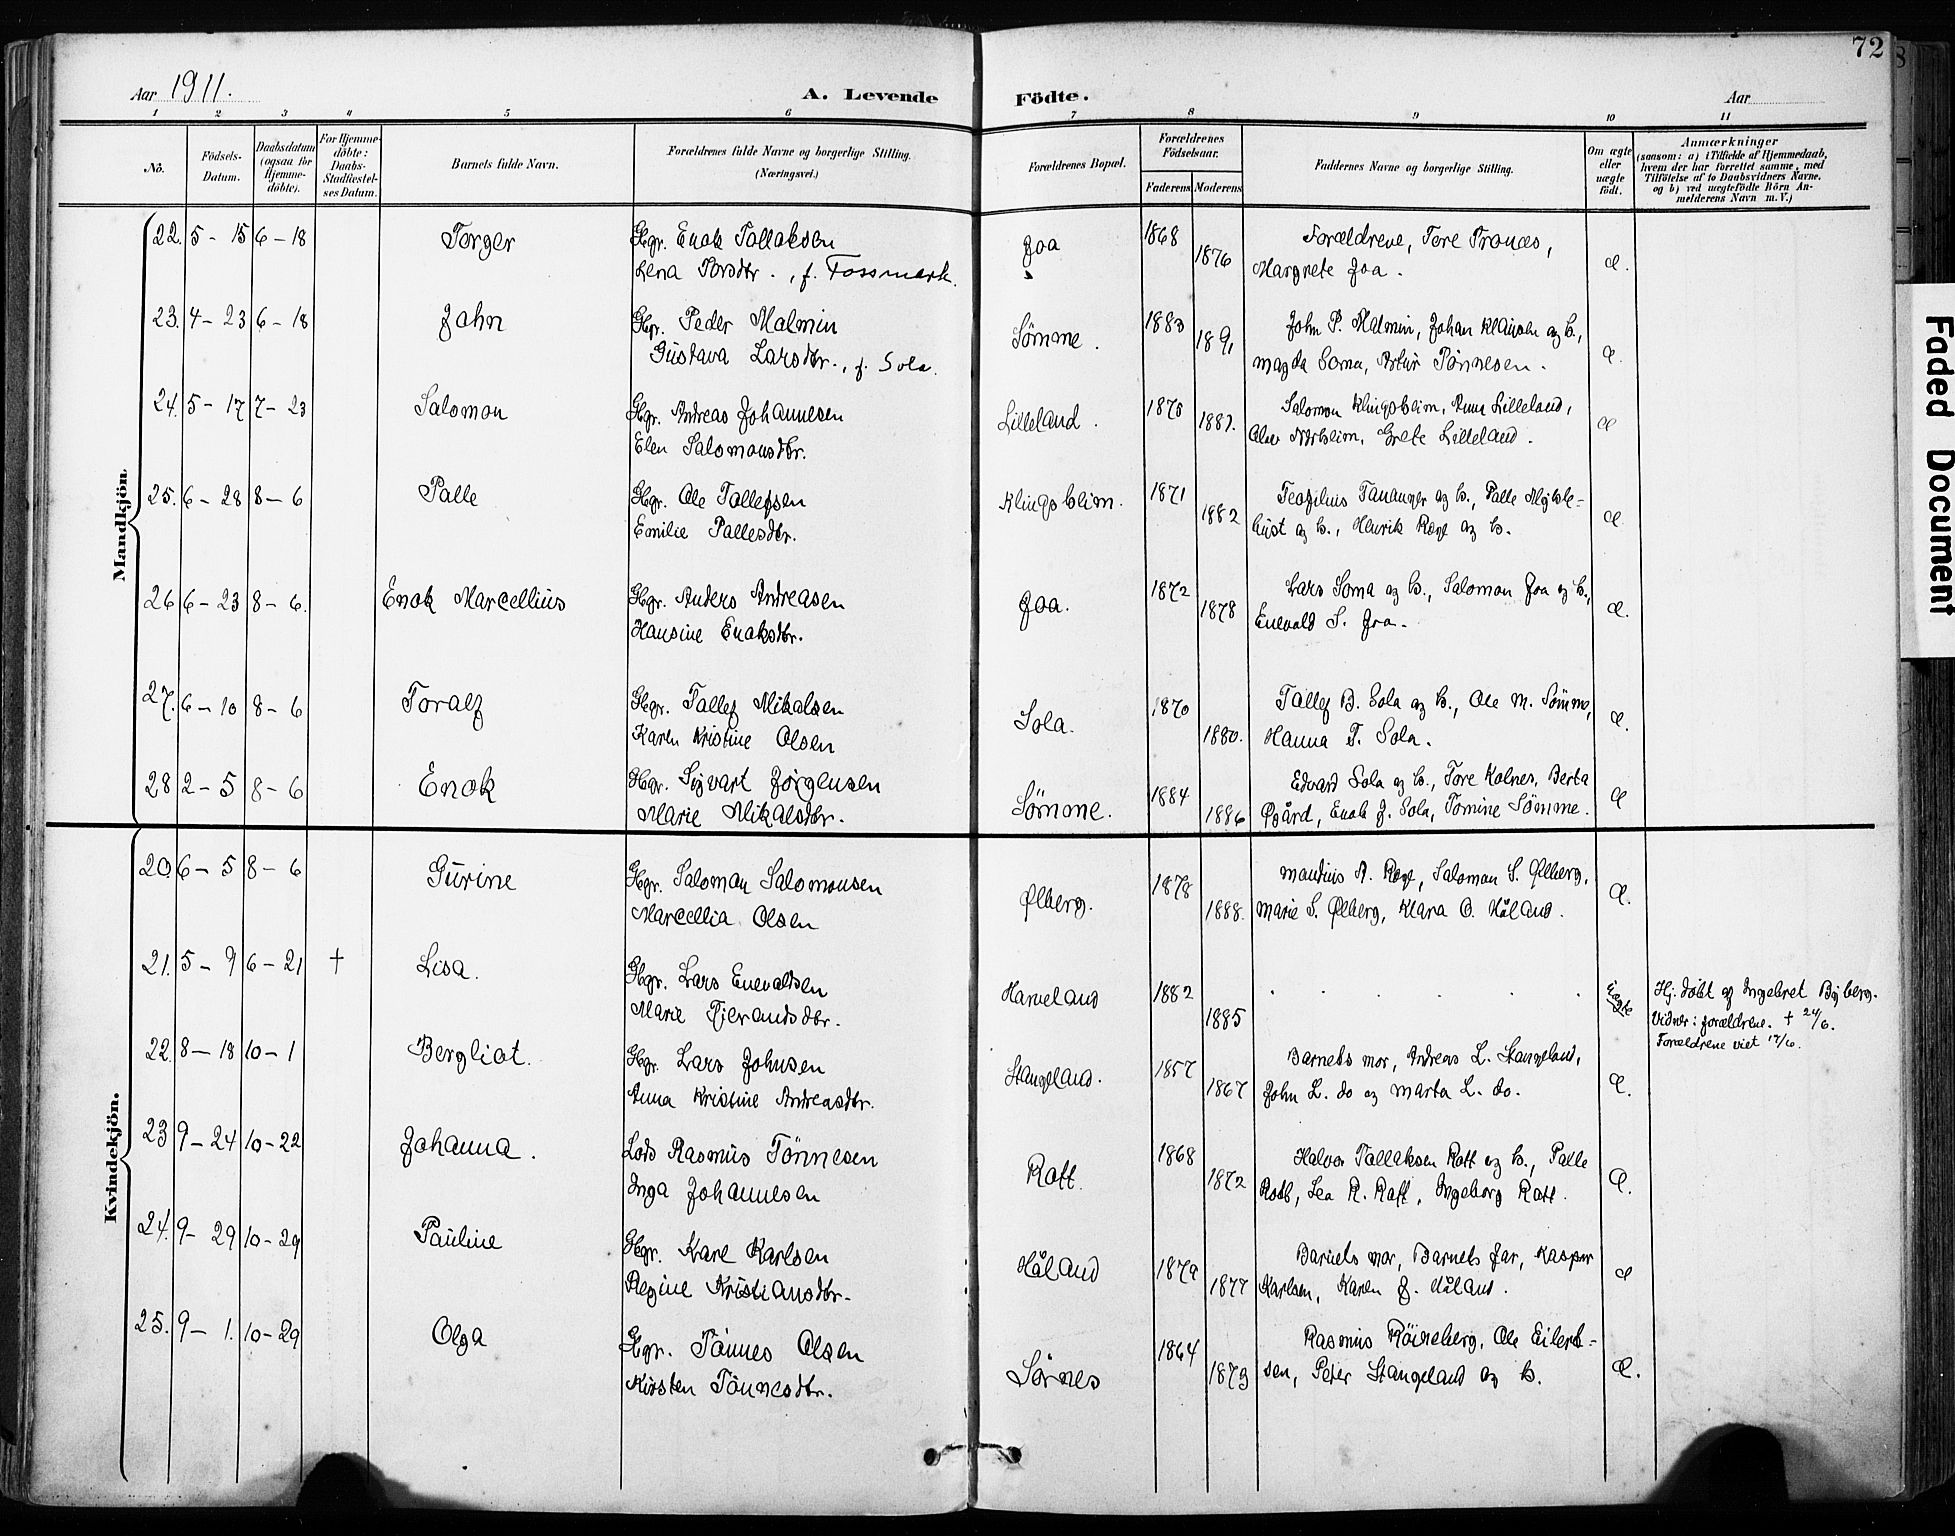 72
Aar 1911. A. Levende Födte. Aar
1 2 3 4 5 6 7 8 9 10 11
No. Födsels-Datum. Daabsdatum (ogsaa for Hjemme-döbte). For Hjemme-döbte: Daabs-Stadfæstel-ses Datum. Barnets fulde Navn. Forældrenes fulde Navne og borgerlige Stilling. (Næringsvei.) Forældrenes Bopæl. Forældrenes Födselsaar. Faderens Moderens Faddernes Navne og borgerlige Stilling. Om ægte eller uægte födt. Anmærkninger (saasom: a) i Tilfælde af Hjemmedaab, hvem der har forrettet samme, med Tilföielse af to Daabsvidners Navne. og b) ved uægtefödte Börn An-melderens Navn m. V.)
Mandkjön.
22. 5 - 15 6 - 18 Torger Gbgr. Enok Tollaksen Joa 1868 Forældrene, Tore Tranæs,
Lena Tordsdtr., f. Fossmark. 1876 Margrete Joa. Æ.
23. 4 - 23 6 - 18 John Gbgr. Peder Malmin Sømme. 1883 John P. Malmin, Johan Klausen og h.,
Gustava Larsdtr., f. Sola. 1891 Magda Soma, Artur Tønnesen. Æ.
24. 5 - 17 7 - 23 Salomon Gbgr. Andreas Johannesen Lilleland. 1870 Salomon Klingsheim, Anna Lilleland,
Elen Salomonsdtr. 1887. Grete Lilleland. Æ
25. 6 - 28 8 - 6 Palle Gbgr. Ole Tollefsen Klingsheim. 1871 Teofilius Tananger og h., Palle Mykle-
Emilie Pallesdtr. 1882 bust og h., Henrik Røge og h. Æ.
26 6 - 23 8 - 6. Enok Marcellius Gbgr. Anders Andreasen Joa. 1872 Lars Soma og h., Salomon Joa og h.,
Hansine Enoksdtr. 1878 Enevald S. Joa. Æ.
27. 6 - 10 8 - 6 Toralf Gbgr. Tollef Mikalsen Sola. 1870 Tollef B. Sola og h., Ole M. Sømme,
Karen Kristine Olsen 1880. Hanna T. Sola. Æ.
28 2 - 5 8 - 6 Enok Gbgr. Sigvart Jørgensen Sømme. 1884 Edvard Sola og h., Tore Kolnes, Berta
Marie Mikalsdtr. 1886 Øgård, Enok J. Sola, Tomine Sømme. Æ
Kvindekjön.
20. 6 - 5 8 - 6 Gurine Gbgr. Saloman Salomonsen Ølberg. 1878 Mandius A. Røge, Saloman S. Ølberg,
Marcellia Olsen 1888. Marie S. Ølberg, Klara O. Håland. Æ.
21. 5 - 9 6 - 21 † Lisa. Gbgr. Lars Enevaldsen Harveland 1882 Uægte Hj. døbt af Ingebret Byberg.
Marie Tjerandsdtr. 1885 Vidner: forældrene. † 24/6.
Forældrene viet 17/6.
22. 8 - 18 10 - 1 Bergliot. Gbgr. Lars Johnsen Stangeland. 1857 Barnets mor, Andreas L. Stangeland,
Anna Kristine Andreasdtr. 1867 John L. do og Marta L. do. Æ.
23 9 - 24 10 - 22 Johanna. Lods Rasmus Tønnesen Rott. 1868 Halvor Tallaksen Rott og h., Palle
Inga Johannesen 1872 Rott, Lea R. Rott, Ingeborg Rott. Æ.
24. 9 - 29 10 - 29 Pauline Gbgr. Karl Karlsen Håland 1879 Barnets mor, Barnets far, Kasper
Regine Kristiansdtr. 1877 Karlsen, Karen J. Håland. Æ
25. 9 - 1. 10 - 29 Olga Gbgr. Tønnes Olsen Sørnes 1864 Rasmus Røineberg, Ole Eilert-
Kirsten Tønnesdtr. 1873 sen, Peter Stangeland og h. Æ.
Faded Document